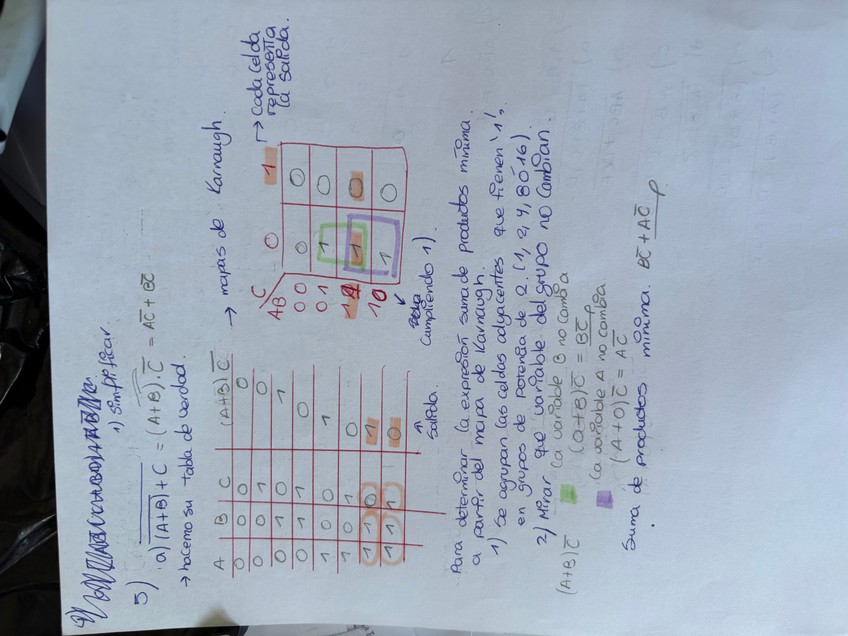 5)
1) Simplificar.
a) \overline{\overline{(A+B)}+C} = (A+B)·\overline{C} = A\overline{C} + B\overline{C}
→ hacemo su tabla de verdad.
→ mapas de Karnaugh.
A B C (A+B)\overline{C}
0 0 0 0
0 0 1 0
0 1 0 1
0 1 1 0
1 0 0 1
1 0 1 0
1 1 0 1
1 1 1 0
↑
Salida.
C
AB 0 1
0 0 0 0
0 1 1 0
1 1 0
1 0 1 0
→ Cada Celda
representa
la salida.
Cumpliendo 1).
Para determinar la expresión suma de productos mínima
a partir del mapa de Karnaugh.
1) Se agrupan las celdas adyacentes que tienen '1',
en grupos de potencia de 2. (1, 2, 4, 8 ó 16).
2) Mirar que variable del grupo no cambian.
(A+B)\overline{C}
la variable B no cambia
(0+B)\overline{C} = B\overline{C}
la variable A no cambia
(A+0)\overline{C} = A\overline{C}
Suma de productos mínima. B\overline{C} + A\overline{C}